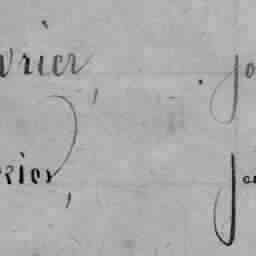 vrier, jo
rier, ja